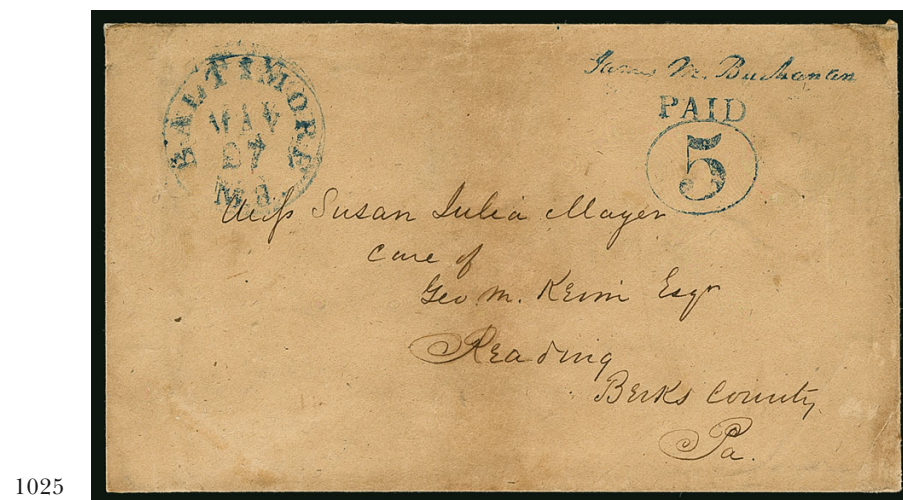 BALTIMORE
MAY
27
Md.
James M. Buchanan
PAID
5
Miss Susan Julia Mayer
Care of
Geo. M. Keim Esqr
Reading
Berks County
Pa.
1025